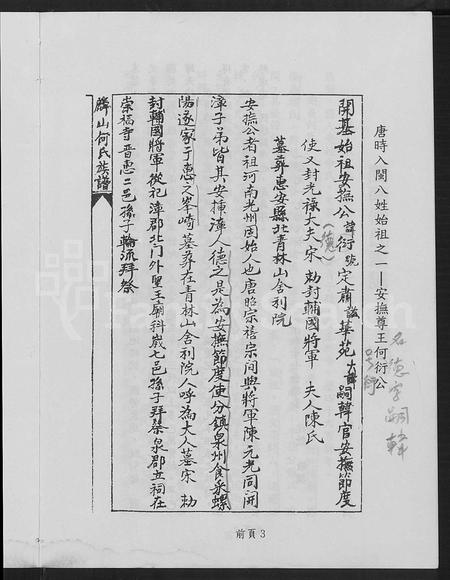 唐時入閩八姓始祖之一——安撫尊王何衍公
名嵩字嗣韓
開基始祖安撫公諱衍號定肅諡華苑大諱嗣韓官安撫節度
使又封光祿大夫宋 勅封輔國將軍 夫人陳氏
墓葬惠安縣北青林山舍利院
安撫公者祖河南光州固始人也唐昭宗禧宗間與將軍陳元光同開
漳子弟皆其安插漳人德之是為安撫節度使分鎮泉州食采螺
陽遂家于惠之峯崎墓葬在青林山舍利院人呼為大人墓宋 勅
封輔國將軍從祀漳郡北門外聖王廟科歲七邑孫子拜祭泉郡立祠在
崇福寺晉惠二邑孫子輪流拜祭
麟山何氏族譜
前頁3